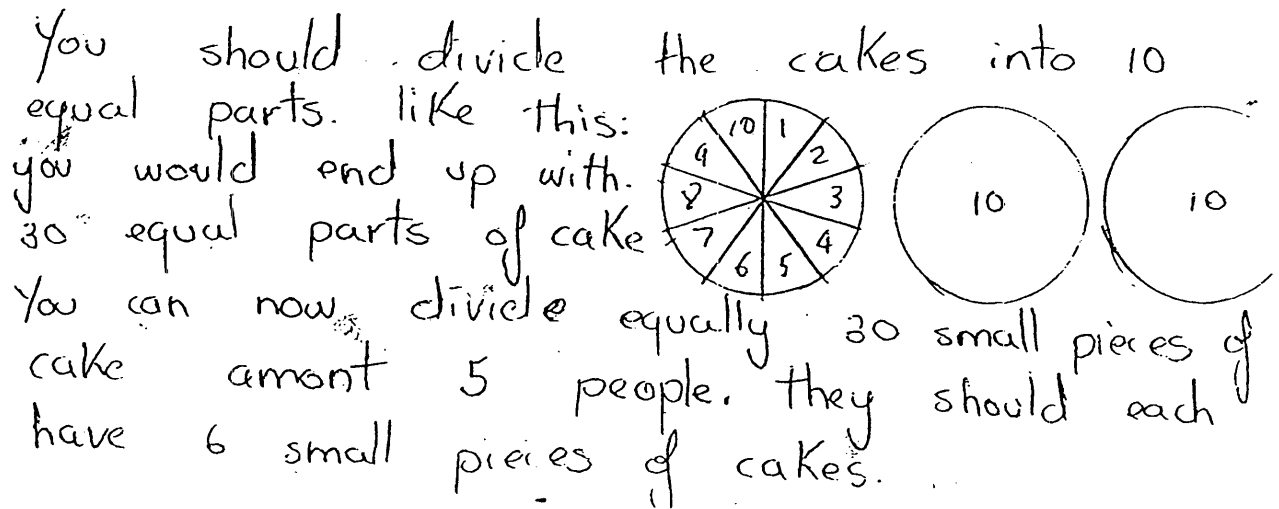 You should divide the cakes into 10
equal parts. like this:
you would end up with.
30 equal parts of cake
10 1
9 2
8 3
7 4
6 5
10
10
You can now divide equally 30 small pieces of
cake amont 5 people. they should each
have 6 small pieces of cakes.